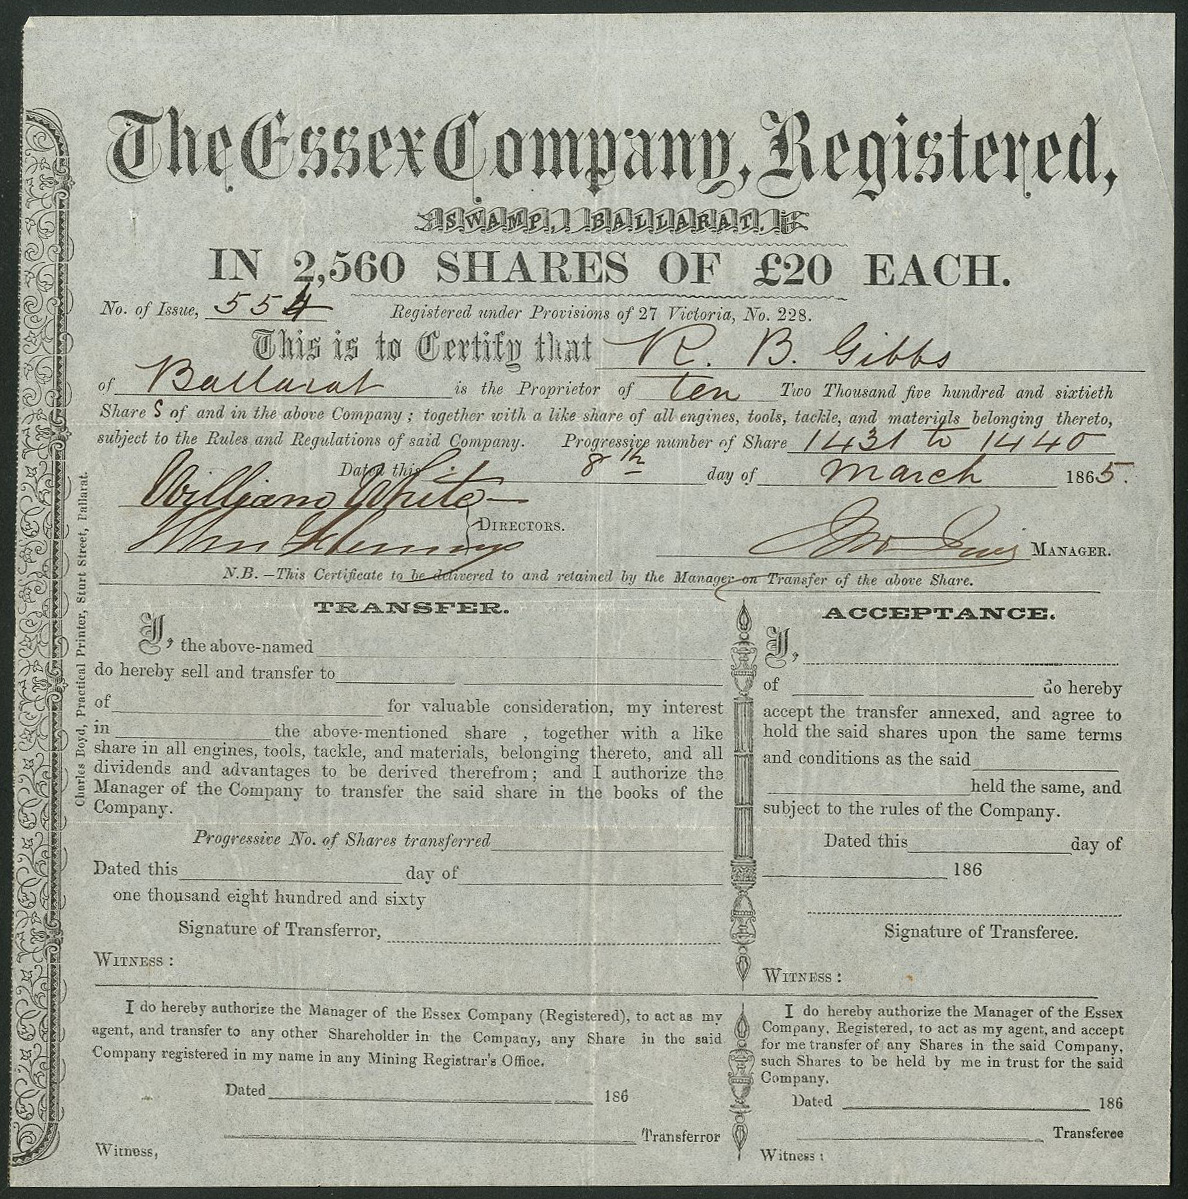 The Essex Company, Registered,
SWAMP, BALLARAT.
IN 2,560 SHARES OF £20 EACH.
No. of Issue, 554 Registered under Provisions of 27 Victoria, No. 228.
This is to Certify that R. B. Gibbs
of Ballarat is the Proprietor of ten Two Thousand five hundred and sixtieth
Share s of and in the above Company; together with a like share of all engines, tools, tackle, and materials belonging thereto,
subject to the Rules and Regulations of said Company. Progressive number of Share 1431 to 1440
Dated this 8th day of March 1865.
William White
DIRECTORS.
Wm
MANAGER.
N.B.—This Certificate to be delivered to and retained by the Manager on Transfer of the above Share.
Charles Boyd, Practical Printer, Sturt Street, Ballarat.
TRANSFER.
I, the above-named
do hereby sell and transfer to
of for valuable consideration, my interest
in the above-mentioned share , together with a like
share in all engines, tools, tackle, and materials, belonging thereto, and all
dividends and advantages to be derived therefrom; and I authorize the
Manager of the Company to transfer the said share in the books of the
Company.
Progressive No. of Shares transferred
Dated this day of
one thousand eight hundred and sixty
Signature of Transferror,
WITNESS :
I do hereby authorize the Manager of the Essex Company (Registered), to act as my
agent, and transfer to any other Shareholder in the Company, any Share in the said
Company registered in my name in any Mining Registrar's Office.
Dated 186
Transferror
Witness,
ACCEPTANCE.
I,
of do hereby
accept the transfer annexed, and agree to
hold the said shares upon the same terms
and conditions as the said
held the same, and
subject to the rules of the Company.
Dated this day of
186
Signature of Transferee.
WITNESS :
I do hereby authorize the Manager of the Essex
Company, Registered, to act as my agent, and accept
for me transfer of any Shares in the said Company,
such Shares to be held by me in trust for the said
Company.
Dated 186
Transferee
Witness :